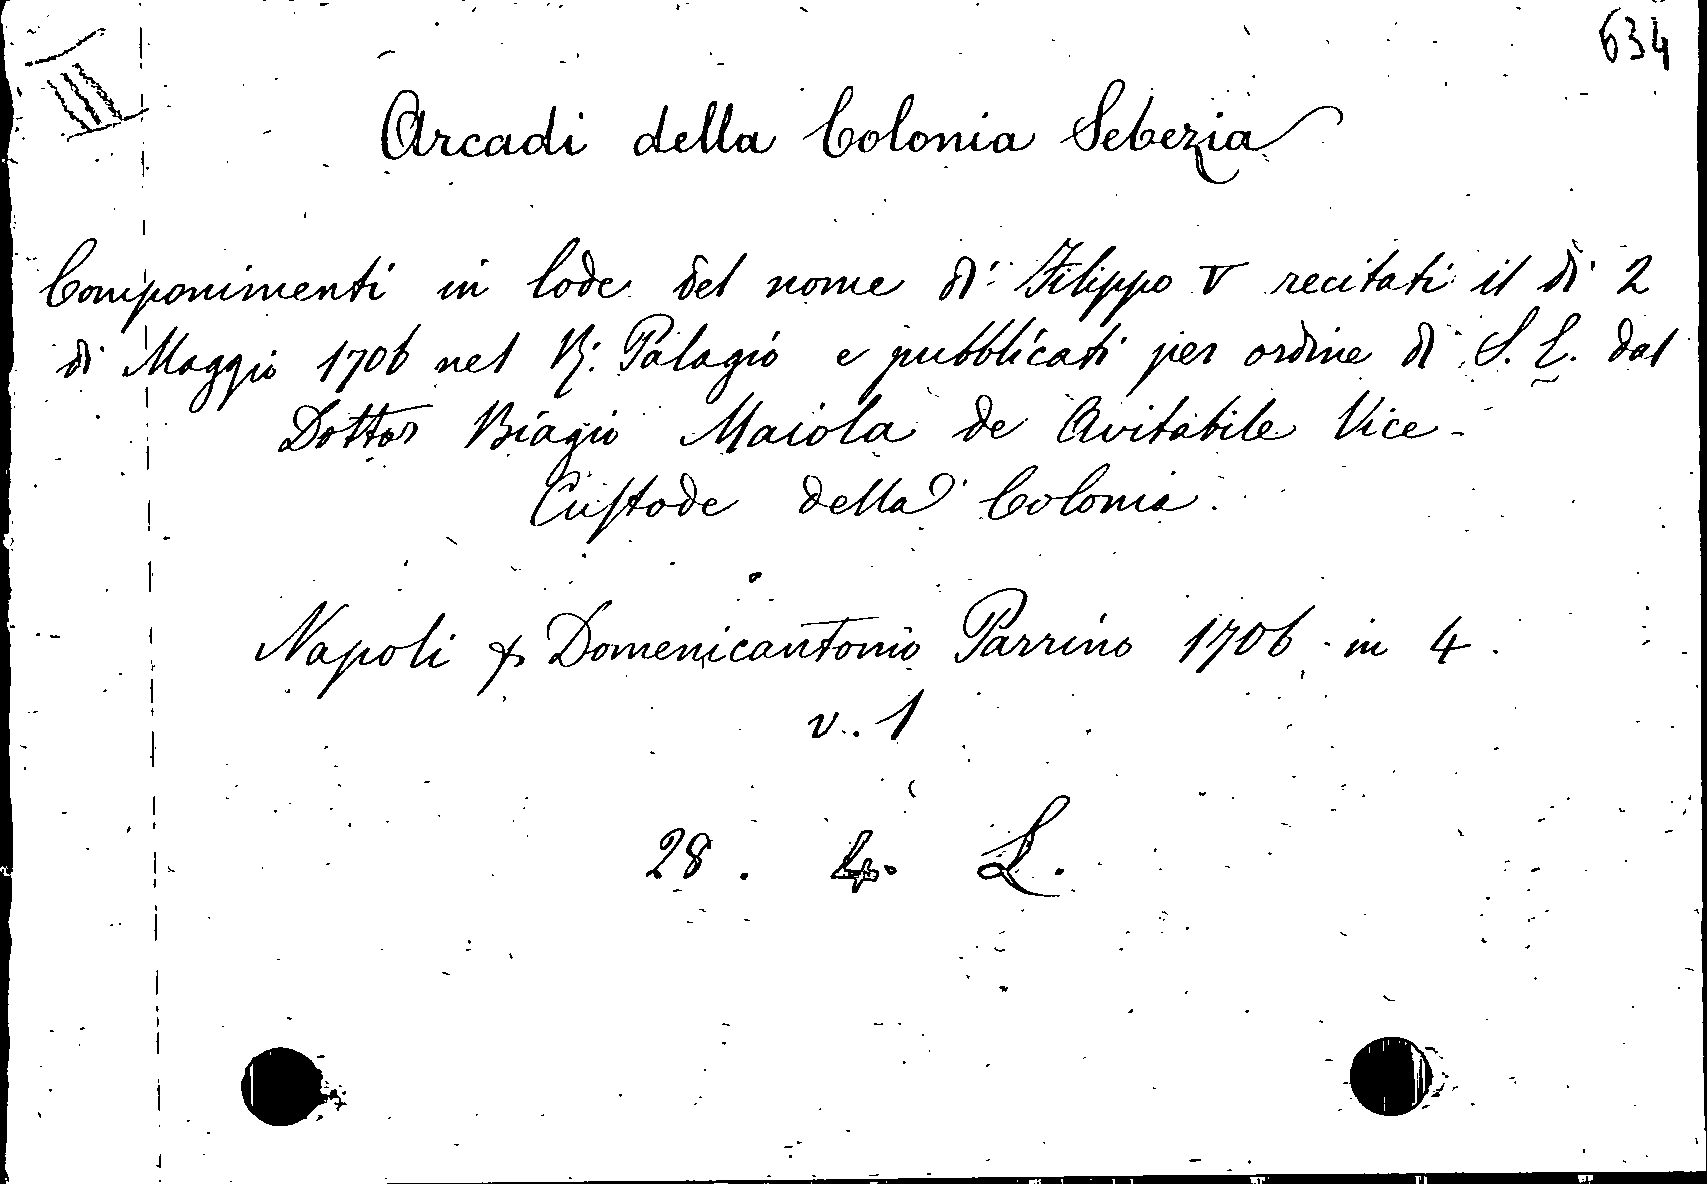 634
III
Arcadi della Colonia Sebezia
Componimenti in lode del nome di Filippo V recitati il dì 2
di Maggio 1706 nel R. Palagio e pubblicati per ordine di S. E. dal
Dottor Biagio Maiola de Avitabile Vice-
Custode della Colonia.
Napoli Domenicantonio Parrino 1706 in 4.
v. 1
28. L.